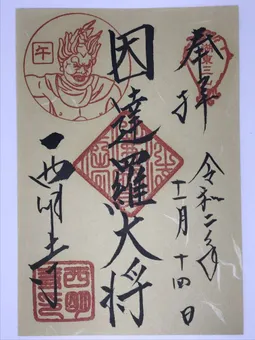 奉拝
令和二年
十一月十四日
因達羅大将
午
西明寺